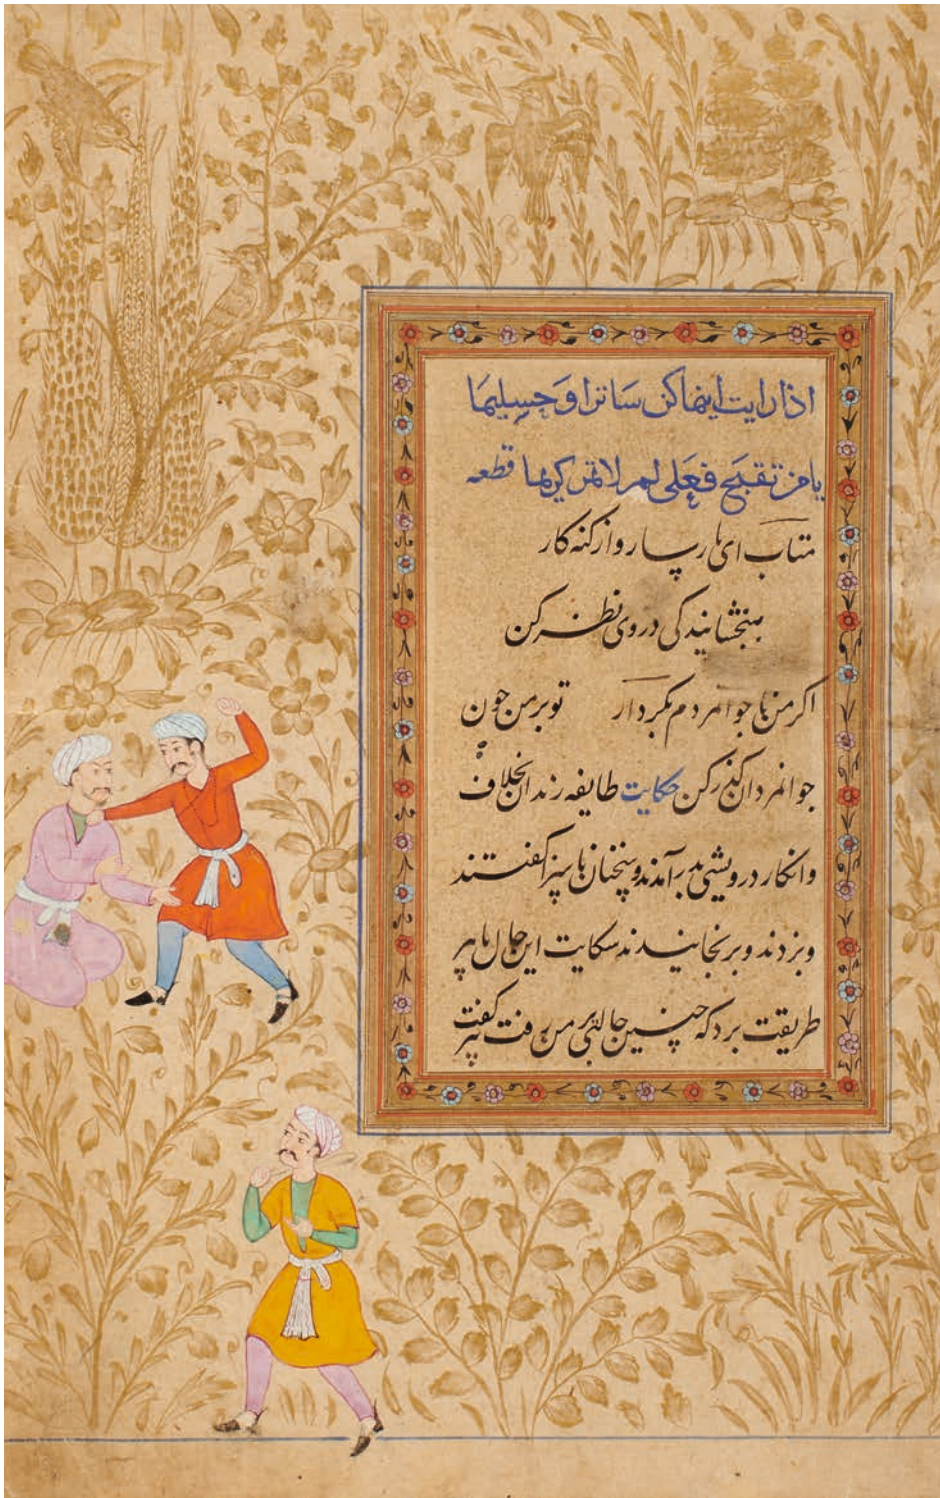 اذا رایت اثیما کن ساترا و حلیما
یا من تقبح فعلی لم لا تمر کریما قطعه
متاب ای پارسا رو از کنه کار
ببخشایندکی در وی نظر کن
اکر من ناجوانمردم بکردار تو بر من چون
جوانمردان کذر کن حکایت طایفه رندان بخلاف
و انکار درویشی بدر آمدند و سخنان ناسزا کفتند
و بزدند و برنجانیدند شکایت این حال با پیر
طریقت برد که چنین حالتی بر من رفت پیر کفت